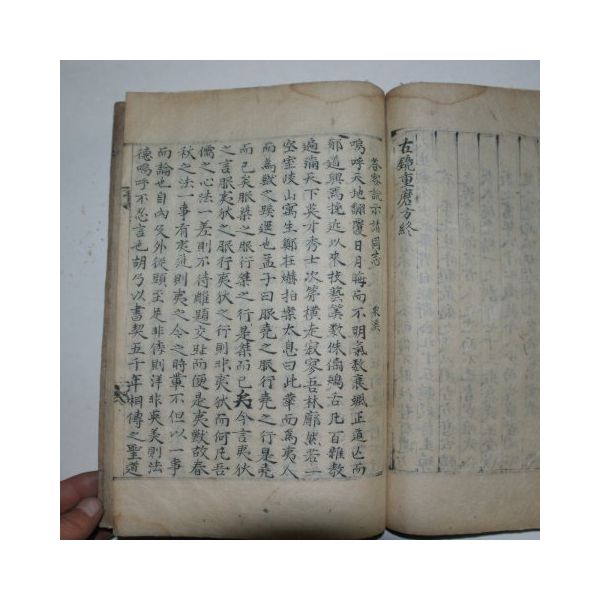 古鏡重磨方終
答客說示諸同志 栗溪
嗚呼天地飜覆日月晦而不明氣數衰颯正道亾而
邪道興焉挽近以來技藝業數侏𠌯鴂舌凡百雜敎
遍滿天下英才秀士次第橫走寂寥吾林廓然若一
空室峻山寓生鄭柱爀拍案太息曰此華而爲夷人
而爲獸之蹊逕也孟子曰服堯之服行堯之行是堯
而已矣服桀之服行桀之行是桀而已矣今言夷狄
之言服夷狄之服行夷狄之行則非夷狄而何凡吾
儒之心法一差則不待雕題交趾而便是夷獸故春
秋之法一事有夷則夷之今之時輩不但以一事
而論也自內及外從頭至足非俄則洋非英美則法
德嗚呼不忍言也胡乃以書契五千年相傳之聖道